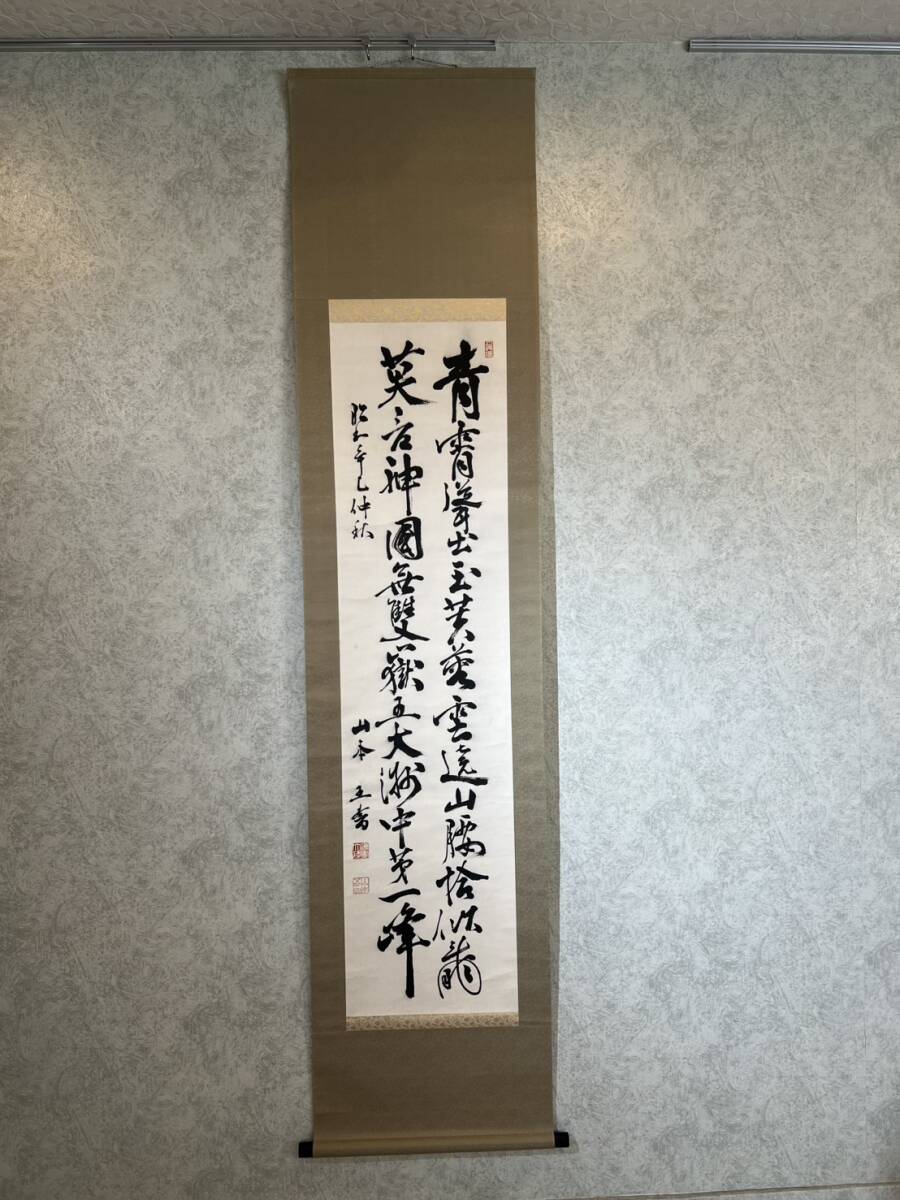 青霄聳出玉芙蓉雲遶山腰恰似龍
莫言神國無雙嶽五大洲中第一峰
昭和辛巳仲秋
山本五